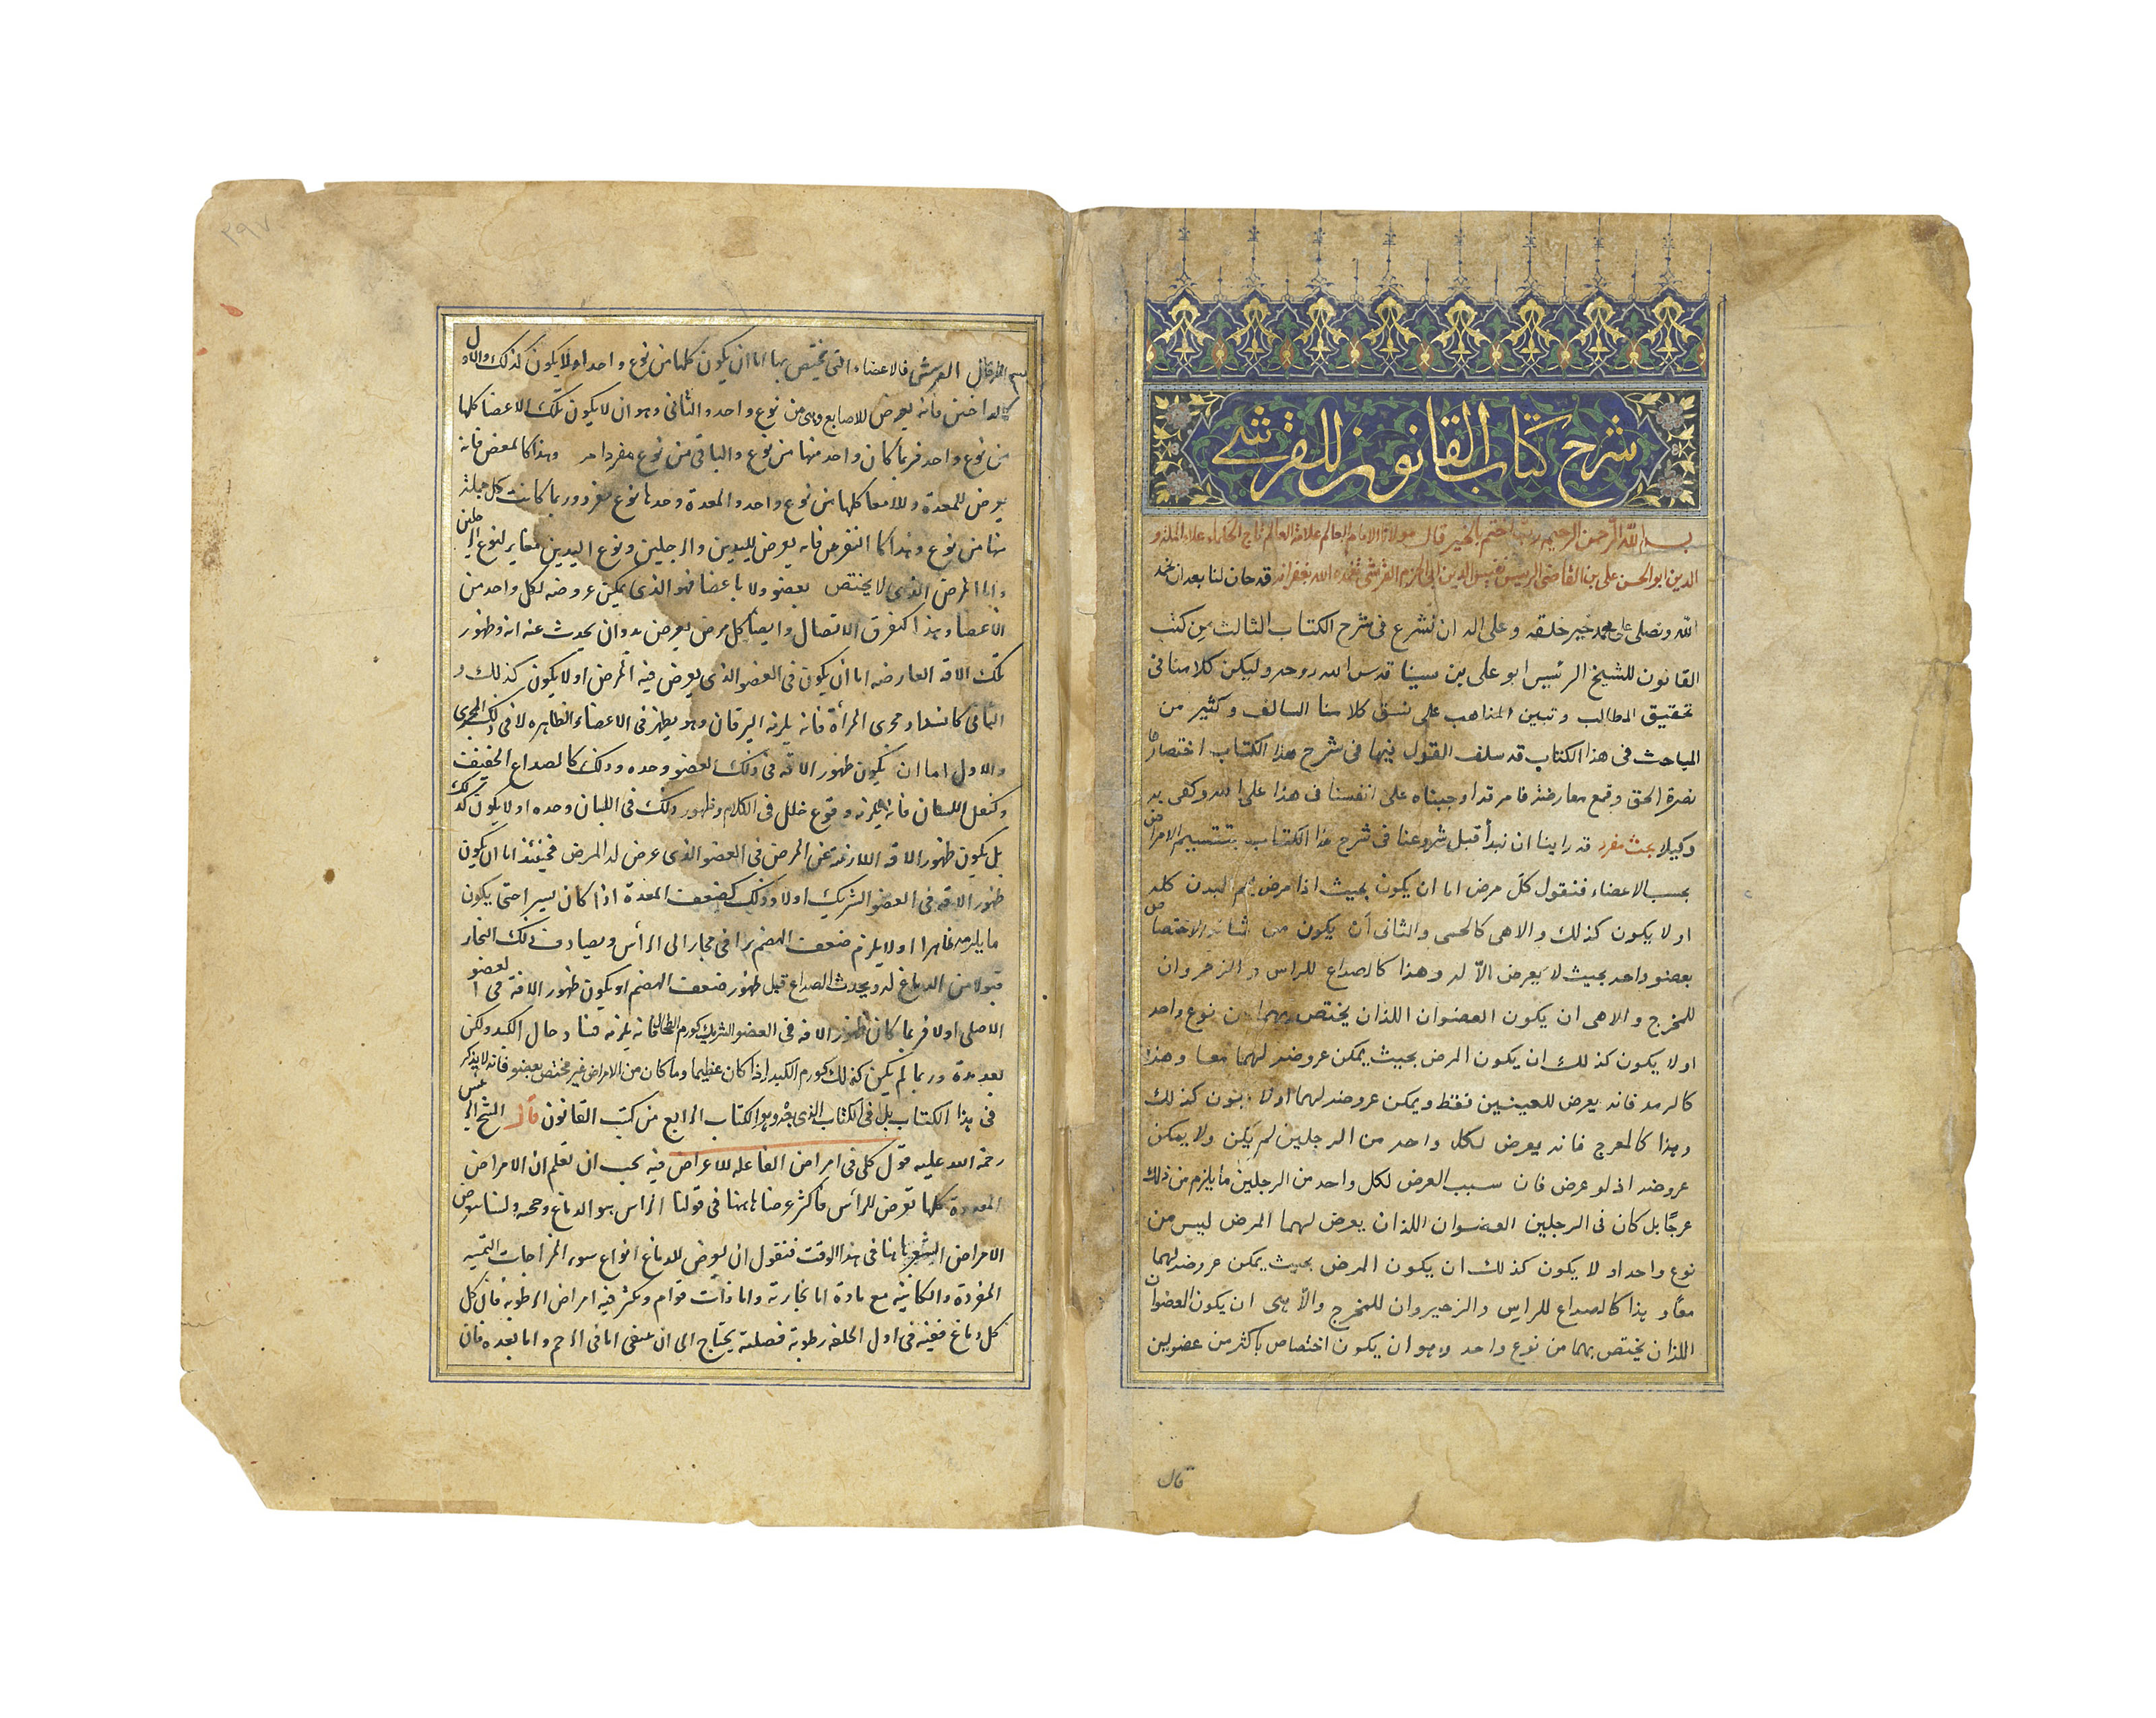 شرح كتاب القانون للقرشي
بسم الله الرحمن الرحيم رب اختم بالخير قال مولانا الامام العالم علامة العالم تاج الحكماء علاء الملة و
الدين ابو الحسن على بن القاضى الرئيس نفيس الدين ابى الحزم القرشى تغمده الله بغفرانه قد حان لنا بعد ان نحمد
الله ونصلى على محمد خير خلقه وعلى اله ان نشرع فى شرح الكتاب الثالث من كتب
القانون للشيخ الرئيس ابو على بن سينا قدس الله روحه وليكن كلامنا فى
تحقيق المطالب وتبين المذاهب على نسق كلامنا السالف وكثير من
المباحث فى هذا الكتاب قد سلف القول فيها فى شرح هذا الكتاب
نصرة الحق وقمع قد اوجبناه على انفسنا فى هذا على الله وكفى به
وكيلا بحث مفرد قد راينا ان نبدأ قبل شروعنا فى شرح هذا الكتاب بتقسيم الامراض
بحسب الاعضاء فنقول كل مرض اما ان يكون بحيث اذا عرض البدن كله
او لا يكون كذلك والاول هى كالحمى والثانى ان يكون من شانه الاختصاص
بعضو واحد بحيث لا يعرض الا له وهذا كالصداع للراس و
للمخرج ان يكون العضوان اللذان يختص بهما من نوع واحد
او لا يكون كذلك ان يكون المرض بحيث يمكن عروضه لهما معا وهذا
كالرمد فانه يعرض للعينين فقط ويمكن عروضه لهما كذلك
وهذا كالعرج فانه يعرض لكل واحد من الرجلين ولا يمكن
عروضه اذ لو عرض فان سبب العرض لكل واحد من الرجلين ما يلزم من ذلك
عرجا بل كان فى الرجلين العضوان اللذان يعرض لهما المرض ليس من
نوع واحد او لا يكون كذلك ان يكون المرض بحيث يمكن عروضه لهما
معا و هذا كالصداع للراس والزحير للمخرج ان يكون العضوان
اللذان يختص بهما من نوع واحد وهو ان يكون اختصاص باكثر من عضوين
قال
فالاعضاء التى يختص بها اما ان يكون كلها من نوع واحد او لا يكون كذلك والاول
كالداحس فانه يعرض للاصابع وهى من نوع واحد والثانى وهو ان لا يكون تلك الاعضا كلها
من نوع واحد فربما كان واحد منها من نوع والباقى من نوع مفرد وهذا كالمغص فانه
يعرض للمعدة وللامعا كلها من نوع واحد والمعدة وحدها نوع مفرد وربما كانت كل جملة
منها من نوع وهذا كالنقرس فانه يعرض لليدين والرجلين ونوع اليدين مغاير لنوع الرجلين
واما المرض الذى لا يختص بعضو ولا باعضا فهو الذى يمكن عروضه لكل واحد من
الاعضا وهذا كتفرق الاتصال وايضا كل مرض يعرض بد وان يحدث عنه افة وظهور
تلك الافة العارضة اما ان يكون فى العضو الذى يعرض فيه المرض او لا يكون كذلك و
الثانى كانسداد مجرى المرارة فانه يلزمه اليرقان وهو يظهر فى الاعضاء الظاهرة لا فى ذلك المجرى
والاول اما ان يكون ظهور الافة فى ذلك العضو وحده وذلك كالصداع الخفيف
وكثقل اللسان فانه يلزمه وقوع خلل فى الكلام وظهور ذلك فى اللسان وحده او لا يكون كذلك
بل يكون ظهور الافة اللازمة عن المرض فى العضو الذى عرض له المرض فحينئذ اما ان يكون
ظهور الافة فى العضو الشريك اولا وذلك كضعف المعدة اذا كان يسيرا حتى يكون
ما يلزمه ظاهرا اولا يلزم ضعف الهضم بخارا الى الرأس ويصادف ذلك البخار
قبولا من الدماغ له ويحدث الصداع قبل ظهور ضعف الهضم او يكون ظهور الافة فى العضو
الاصلى اولا فربما كان ظهور الافة فى العضو الشريك كورم الطحال فانه يلزمه فساد حال الكبد ولكن
بعد مدة وربما لم يكن كذلك كورم الكبد اذا كان عظيما وما كان من الامراض غير مختص بعضو فانه لا يذكر
فى هذا الكتاب بل فى الكتاب الذى وهو الكتاب الرابع من كتب القانون قال الشيخ الرئيس
رحمة الله عليه قول كلى فى امراض الفاعلة للاعراض فيه يجب ان تعلم ان الامراض
المعدودة كلها تعرض للرأس فاكثر غرضنا هاهنا فى قولنا الراس هو الدماغ وحجبه ولسنا نتعرض
الامراض الشعر هاهنا فى هذا الوقت فنقول ان يعرض للدماغ انواع سوء المزاجات الثمنية
المفردة والكائنة مع مادة اما بخارية واما ذات قوام ويكثر فيه امراض الرطوبة فان كل
كل دماغ ففيه فى اول الخلقة رطوبة فضلية يحتاج الى ان تنقى اما فى الرحم واما بعده فان